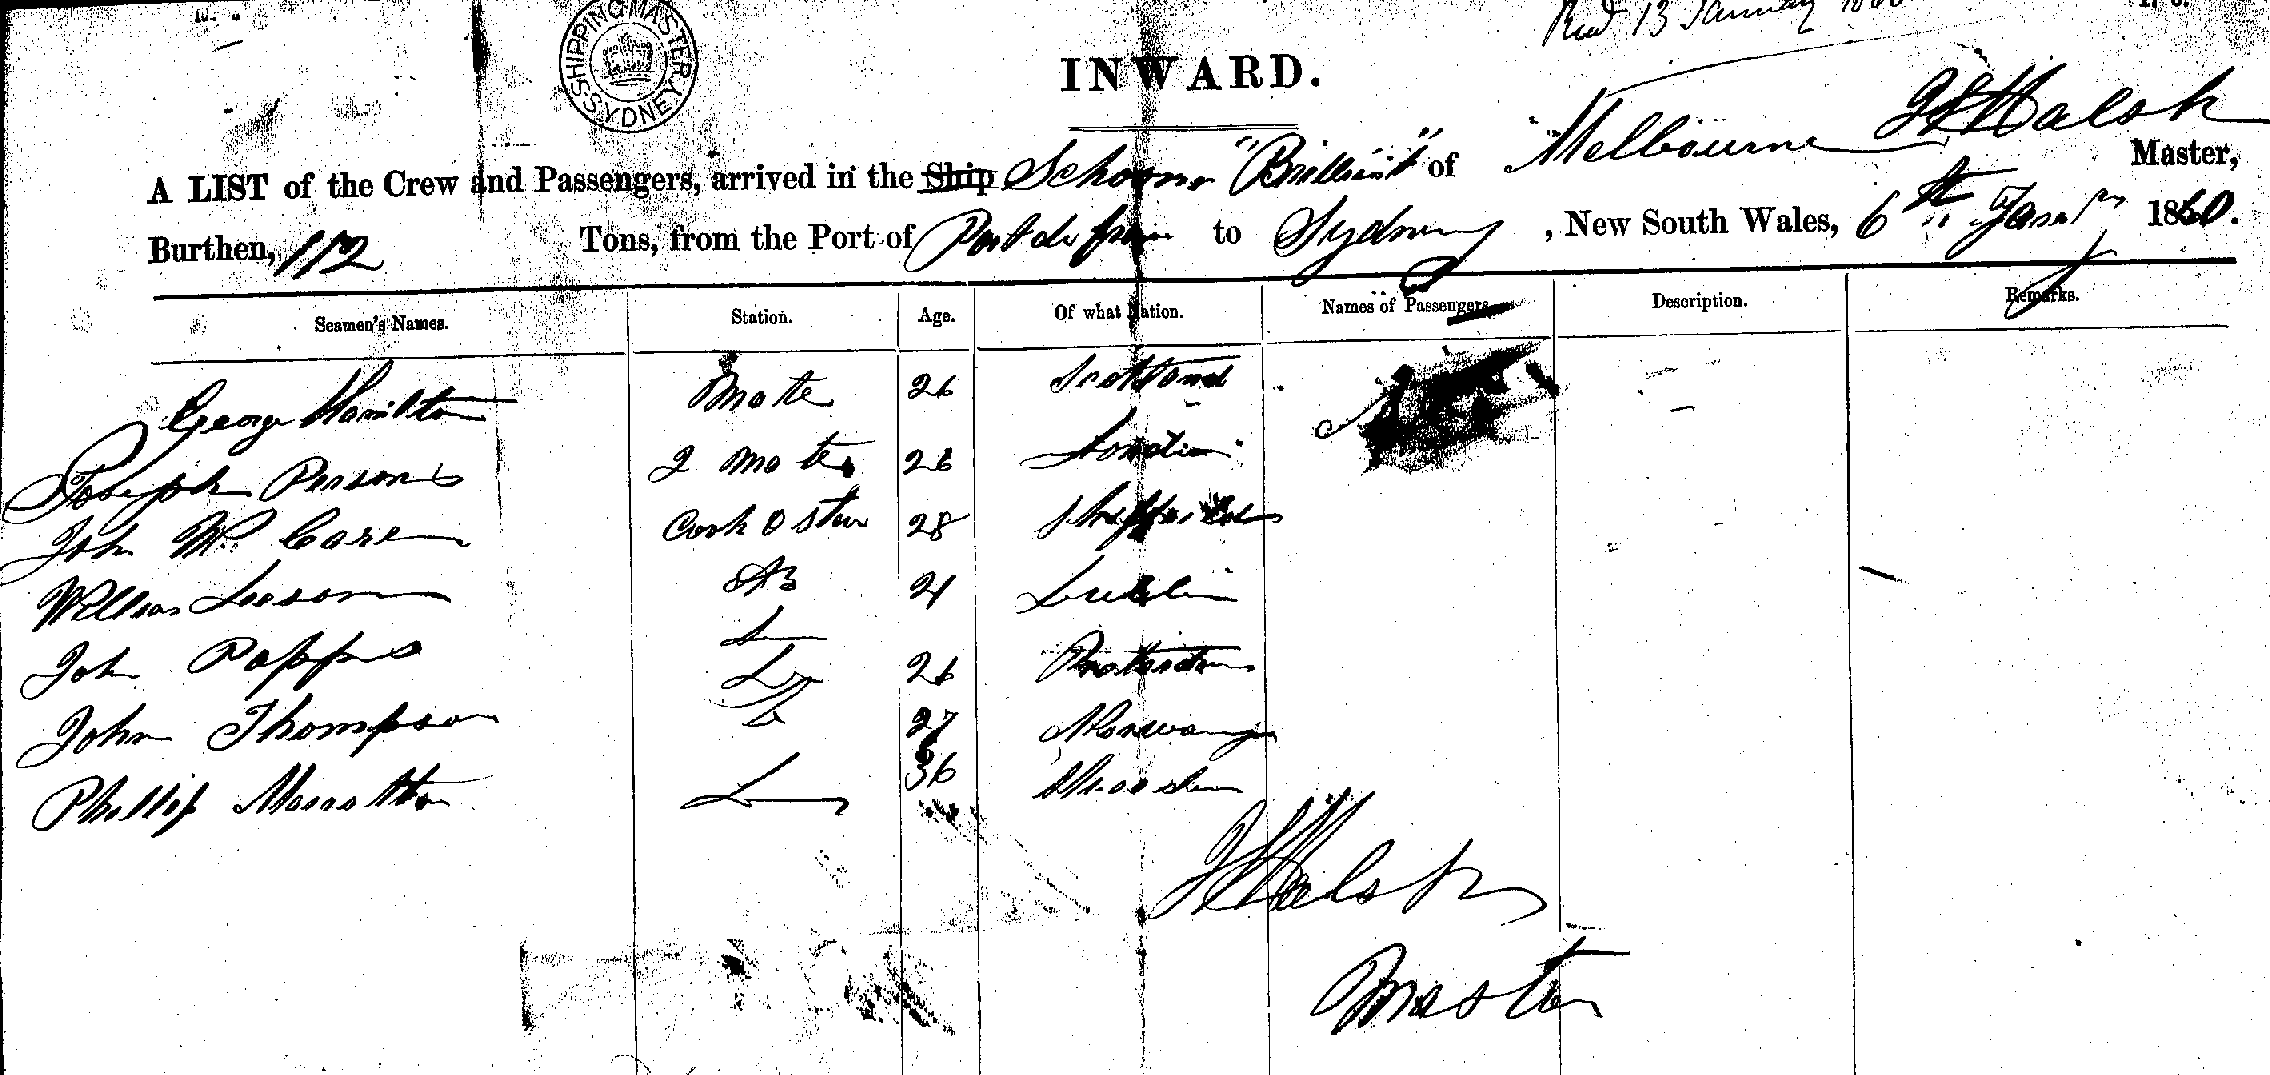 SHIPPING MASTER SYDNEY
Recd 13 January 1860
INWARD.
A LIST of the Crew and Passengers, arrived in the Ship Schooner "Brilliant" of Melbourne Walsh Master,
Burthen, 112 Tons, from the Port of Port de france to Sydney, New South Wales, 6th Jany 1860.
Seamen's Names. Station. Age. Of what Nation. Names of Passengers. Description. Remarks.
George Hamilton Mate 26 Scotland
Joseph Parsons 2 Mate 26 London
John Mc Care Cook & Stew 28
William Leeson AB 21 Dublin
John Papps 26
John Thompson 27 Norway
Phillip 36
Master